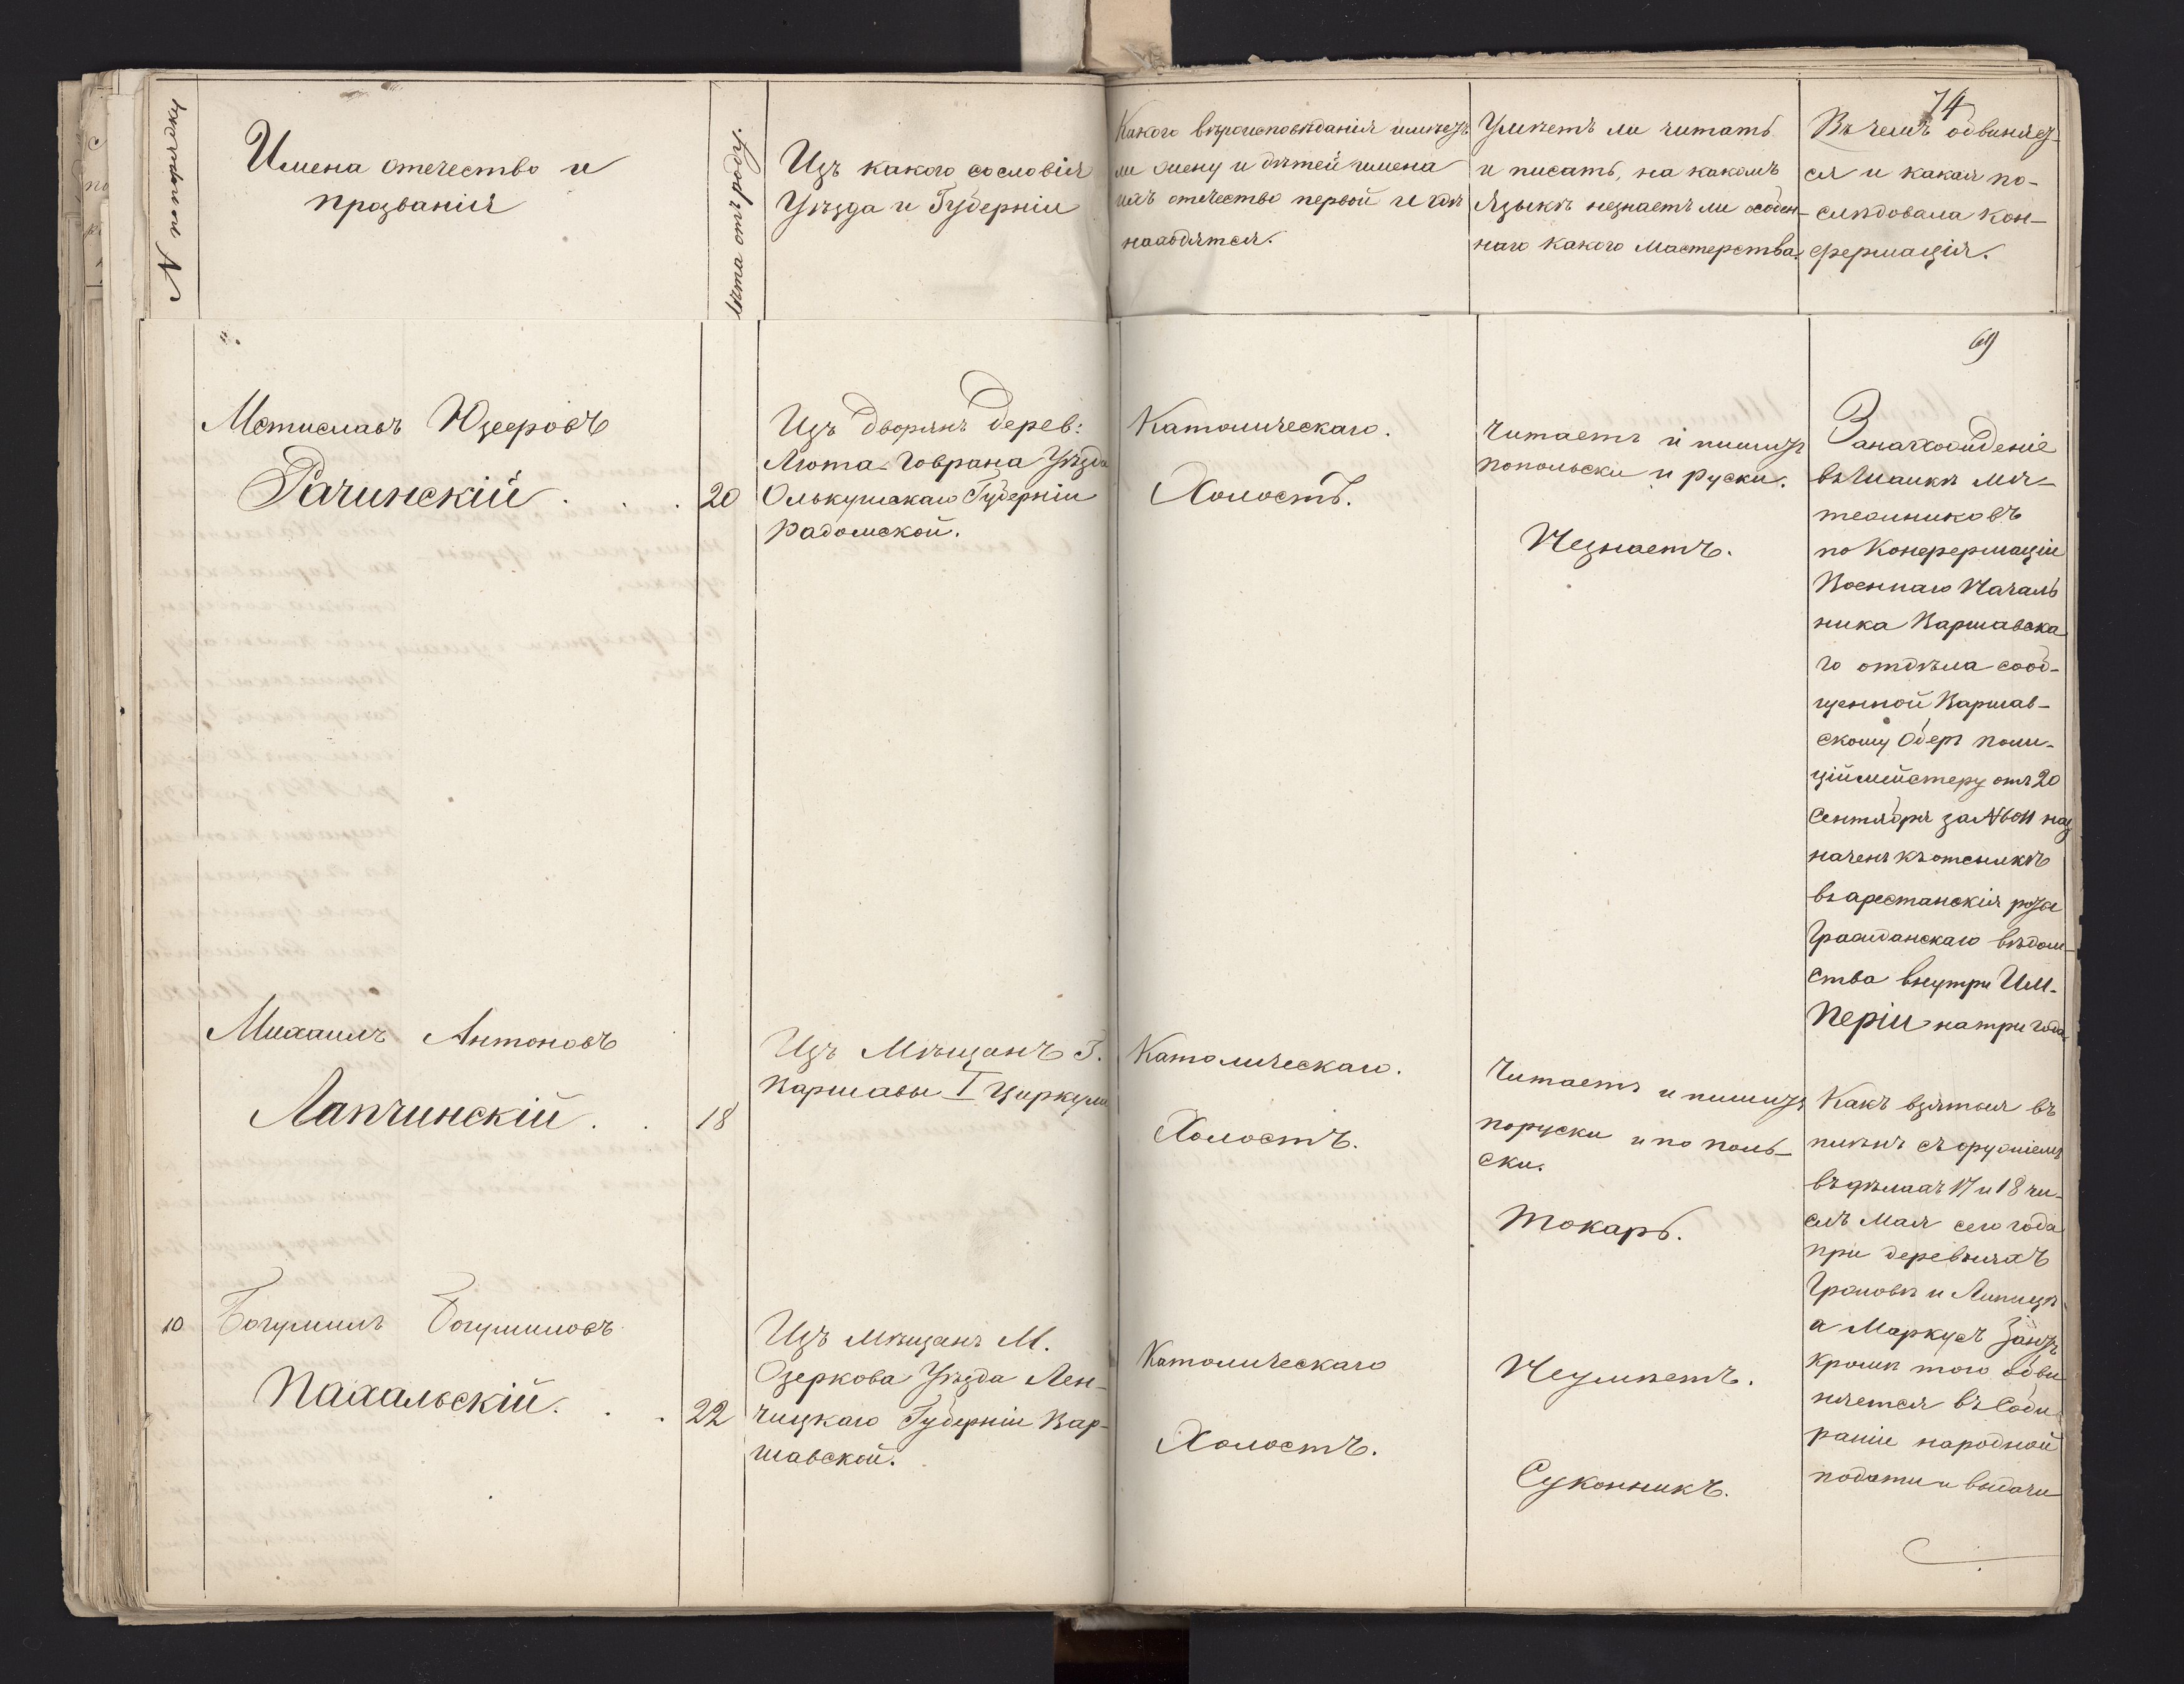 № по порядку
Имена отечество и
прозванія
Лѣта отъ роду.
Изъ какого сословія
Уѣзда и Губерніи
Какого вѣроисповѣданія имѣетъ
ли жену и дѣтей имена
ихъ отечество первой и гдѣ
находятся.
Умѣетъ ли читать
и писать, на какомъ
Языкѣ незнаетъ ли особен-
наго какого мастерства.
74
Въ чемъ обвиняет-
ся и какая по-
слѣдовала кон-
фермація.
69
Мстиславъ Юзефовъ
Рачинскій . . .
20
Изъ дворянъ дерев:
Уѣзда
Олькушскаго Губерніи
Радомской.
Католическаго.
Холостъ.
Читаетъ и пишетъ
попольски и руски.
Незнаетъ.
Занахожденіе
въ Шайкѣ мя-
тежниковъ
по Конфермаціи
Военнаго Началь
ника Варшавска
го отдѣла сооб-
щенной Варшав-
скому Оберъ поли-
ціймейстеру отъ 20
Сентября за № 6011 наз
наченъ къ отсылкѣ
въ арестанскія роты
Гражданскаго вѣдом-
ства внутри Им-
періи на три года
Михаилъ Антоновъ
Лапчинскій . .
18
Изъ Мѣщанъ Г.
Варшавы I Циркула
Католическаго.
Холостъ.
Читаетъ и пишетъ
поруски и по поль-
ски.
Токарь.
Какъ взятыя въ
плѣнъ съ оружіемъ
въ дѣлахъ 17 и 18 чи-
слъ Мая сего года
при деревняхъ
и
а Маркусъ
кромѣ того обви
няется въ Соби
раніи народной
подати и выдачи
10
Богумилъ Богумиловъ
Пахальскій . . .
22
Изъ мѣщанъ М.
Озеркова Уѣзда Лен-
чицкаго Губерніи Вар-
шавской.
Католическаго
Холостъ.
Неумѣетъ.
Суконникъ.